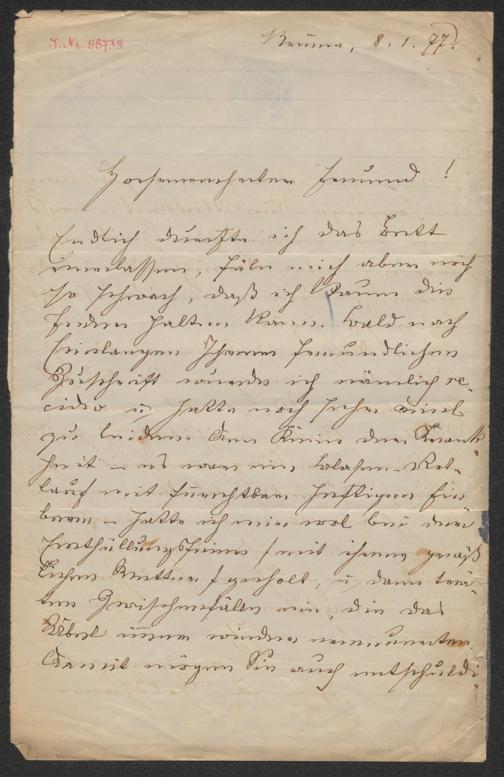 J. Nr. 98739
Brünn, 8. 1. 77.
Hochverehrter Freund!
Endlich durfte ich das Bett
verlassen, fühle mich aber noch
so schwach, daß ich kaum die
Feder halten kann. Bald nach
Einlangen Ihrer freundlichen
Zuschrift wurde ich nämlich re-
cidiv u. hatte noch sehr viel
zu leiden. Den Keim der Krank
heit – es war ein Blasen-Rot-
lauf mit furchtbar heftigem Fie
ber – hatte ich mir wol bei der
Enthüllungsfeier (mit ihrem gräß
lichen Wetter) geholt, u. dann
Zwischenfälle ein, die das
Übel immer wieder erneuerten.
Damit mögen Sie auch entschuldi-